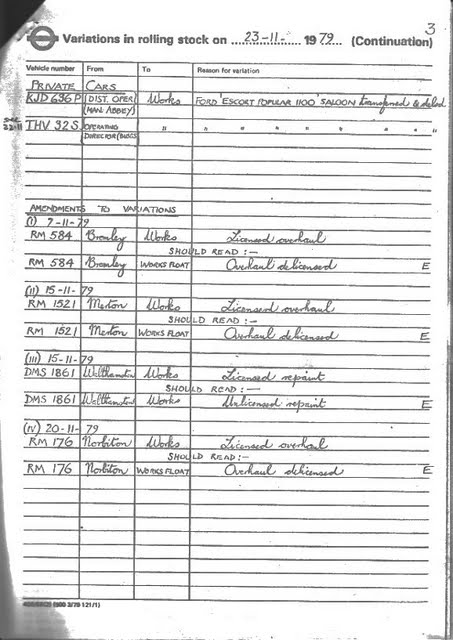 3
Variations in rolling stock on 23-11- 1979 (Continuation)
Vehicle number From To Reason for variation
PRIVATE CARS
KJD 636 P DIST. OPER. (MAN. ABBEY) Works FORD 'ESCORT POPULAR 1100' SALOON transferred & delcd
THV 32 S OPERATING DIRECTOR (BUSES) " " " " " " " "
22-11
AMENDMENTS TO VARIATIONS
(I) 7-11-79
RM 584 Bromley Works Licensed overhaul
SHOULD READ :-
RM 584 Bromley WORKS FLOAT Overhaul delicensed E
(II) 15-11-79
RM 1521 Merton Works Licensed overhaul
SHOULD READ :-
RM 1521 Merton WORKS FLOAT Overhaul delicensed E
(III) 15-11-79
DMS 1861 Walthamstow Works Licensed repaint
SHOULD READ :-
DMS 1861 Walthamstow Works Unlicensed repaint E
(IV) 20-11-79
RM 176 Norbiton Works Licensed overhaul
SHOULD READ :-
RM 176 Norbiton WORKS FLOAT Overhaul delicensed E